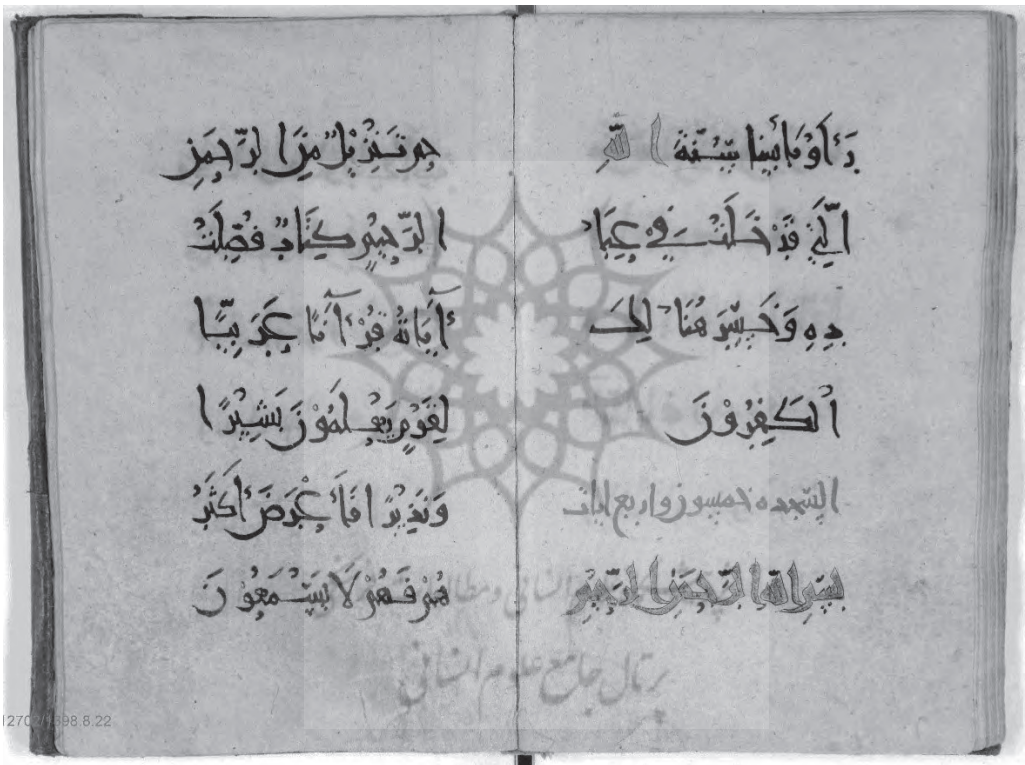 رَأَوْ بَأْسَنَا سُنَّةَ اللّٰهِ
الَّتِي قَدْ خَلَتْ فِي عِبَا
دِهِ وَخَسِرَ هُنَالِكَ
الْكَفِرُونَ
السجده خمسون واربع ايات
بِسْمِ اللهِ الرَّحْمَنِ الرَّحِيمِ
حم تَنْزِيلٌ مِنَ الرَّحْمَنِ
الرَّحِيمِ كِتَابٌ فُصِّلَتْ
آيَاتُهُ قُرْآنًا عَرَبِيًّا
لِقَوْمٍ يَعْلَمُوْنَ بَشِيْرًا
وَنَذِيْرًا فَأَعْرَضَ أَكْثَرُ
هُمْ فَهُمْ لَا يَسْمَعُوْنَ
انسانی و مطالعات
پرتال جامع علوم انسانی
1398.8.22